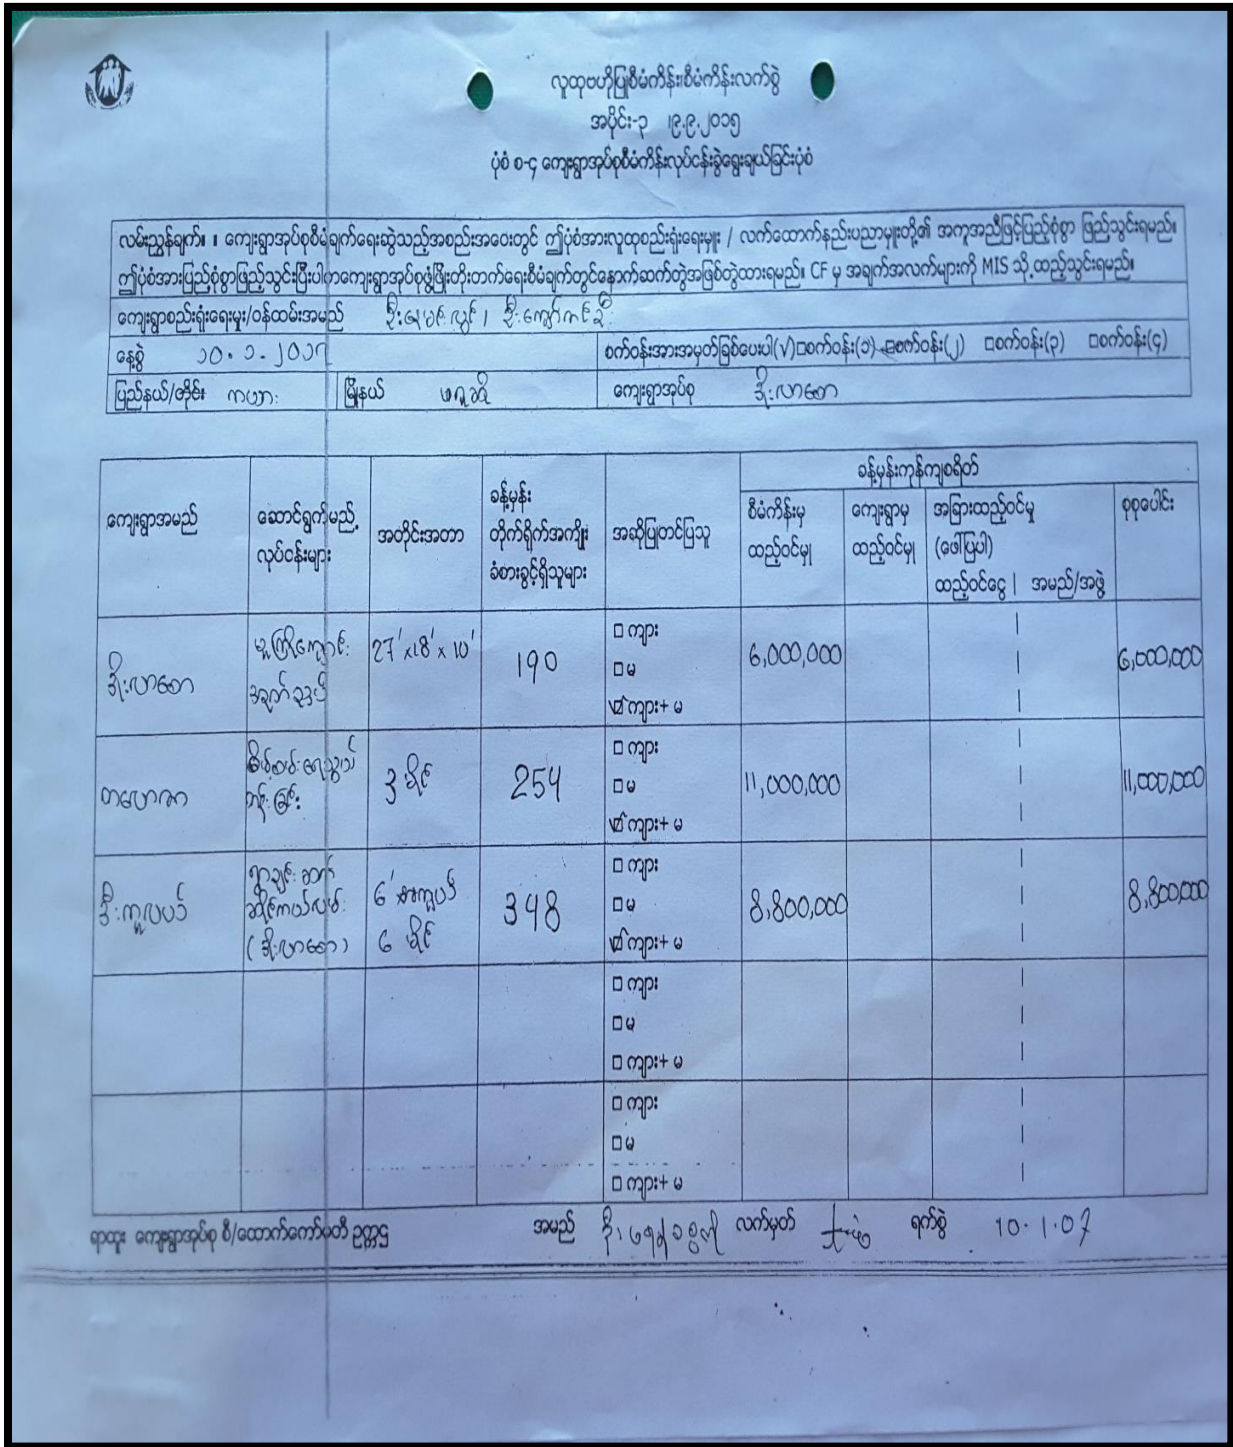 လူထုဗဟိုပြုစီမံကိန်းစီမံကိန်းလက်စွဲ
အပိုင်း-၃ ၊၉.၉.၂၀၁၅
ပုံစံ စ-၄ ကျေးရွာအုပ်စုစီမံကိန်းလုပ်ငန်းခွဲရွေးချယ်ခြင်းပုံစံ
လမ်းညွှန်ချက်။ ။ ကျေးရွာအုပ်စုစီမံချက်ရေးဆွဲသည့်အစည်းအဝေးတွင် ဤပုံစံအားလူထုစည်းရုံးရေးမှူး / လက်ထောက်နည်းပညာမှူးတို့၏ အကူအညီဖြင့်ပြည့်စုံစွာ ဖြည့်သွင်းရမည်။
ဤပုံစံအားပြည့်စုံစွာဖြည့်သွင်းပြီးပါကကျေးရွာအုပ်စုဖွံ့ဖြိုးတိုးတက်ရေးစီမံချက်တွင်နောက်ဆက်တွဲအဖြစ်တွဲထားရမည်။ CF မှ အချက်အလက်များကို MIS သို့ ထည့်သွင်းရမည်။
ကျေးရွာစည်းရုံးရေးမှူး/ဝန်ထမ်းအမည်
နေ့စွဲ ၁၀.၁.၂၀၁၇ စက်ဝန်းအားအမှတ်ခြစ်ပေးပါ(√)□စက်ဝန်း(၁) ☑စက်ဝန်း(၂) □စက်ဝန်း(၃) □စက်ဝန်း(၄)
ပြည်နယ်/တိုင်း ကယား မြို့နယ် ဖရူဆို ကျေးရွာအုပ်စု ဒိုးလာစော
ခန့်မှန်းကုန်ကျစရိတ်
ကျေးရွာအမည် ဆောင်ရွက်မည့် လုပ်ငန်းများ အတိုင်းအတာ ခန့်မှန်း တိုက်ရိုက်အကျိုး ခံစားခွင့်ရှိသူများ အဆိုပြုတင်ပြသူ စီမံကိန်းမှ ထည့်ဝင်မှု ကျေးရွာမှ ထည့်ဝင်မှု အခြားထည့်ဝင်မှု (ဖေါ်ပြပါ) ထည့်ဝင်ငွေ | အမည်/အဖွဲ့ စုစုပေါင်း
□ ကျား
ဒိုးလာစော မူကြိုကျောင်း 27'x18'x10' 190 □ မ 6,000,000 6,000,000
☑ ကျား+ မ
□ ကျား
3 မိုင် 254 □ မ 11,000,000 11,000,000
☑ ကျား+ မ
□ ကျား
348 □ မ 8,800,000 8,800,000
(ဒိုးလာစော) 6 မိုင် ☑ ကျား+ မ
□ ကျား
□ မ
□ ကျား+ မ
□ ကျား
□ မ
□ ကျား+ မ
ရာထူး ကျေးရွာအုပ်စု စီ/ထောက်ကော်မတီ ဥက္ကဋ္ဌ အမည် လက်မှတ် ရက်စွဲ 10.1.07